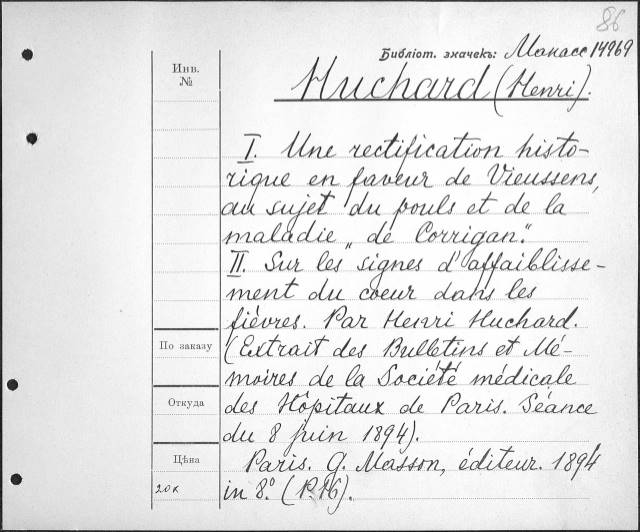 86
Библіот. значекъ: Монасс 14969
Инв.
№
Huchard (Henri).
I. Une rectification histo-
rique en faveur de Vieussens,
au sujet du pouls et de la
maladie „de Corrigan“.
II. Sur les signes d'affaiblisse-
ment du coeur dans les
fièvres. Par Henri Huchard.
По заказу
(Extrait des Bulletins et Mé-
moires de la Société médicale
Откуда
des Hôpitaux de Paris. Séance
du 8 juin 1894).
Цѣна
Paris. G. Masson, éditeur. 1894
20к
in 8.° (P.16).